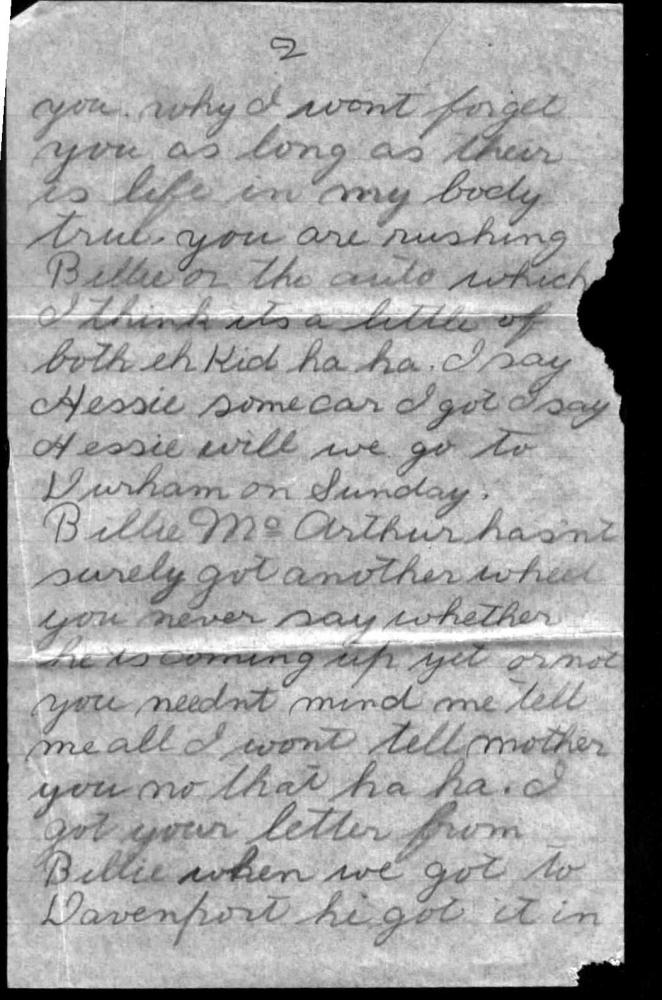 2
you. why I wont forget
you as long as their
is life in my body
true. you are rushing
Billie or the auto which
I think its a little of
both eh Kid ha ha. I say
Hessie some car I got I say
Hessie will we go to
Durham on Sunday.
Billie Mc Arthur hasnt
surely got another wheel
you never say whether
he is coming up yet or not
you neednt mind me tell
me all I wont tell mother
you no that ha ha. I
got your letter from
Billie when we got to
Davenport he got it in